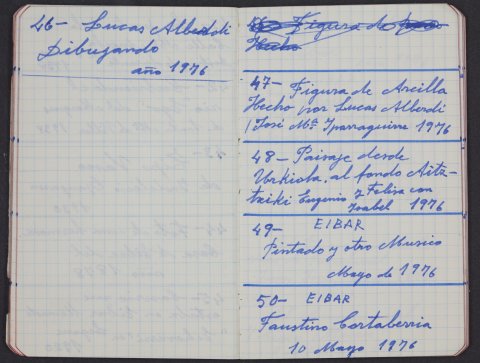 46- Lucas Alberdi
Dibujando
año 1976
46- Figura de
Hecho
47- Figura de Arcilla
Hecho por Lucas Alberdi
(José Mª Iparraguirre 1976
48- Paisaje desde
Urkiola, al fondo Aitz-
txiki Eugenio y Felisa con
Isabel 1976
49- EIBAR
Pintado y otro Musico
Mayo de 1976
50- EIBAR
Faustino Cortaberria
10 Mayo 1976